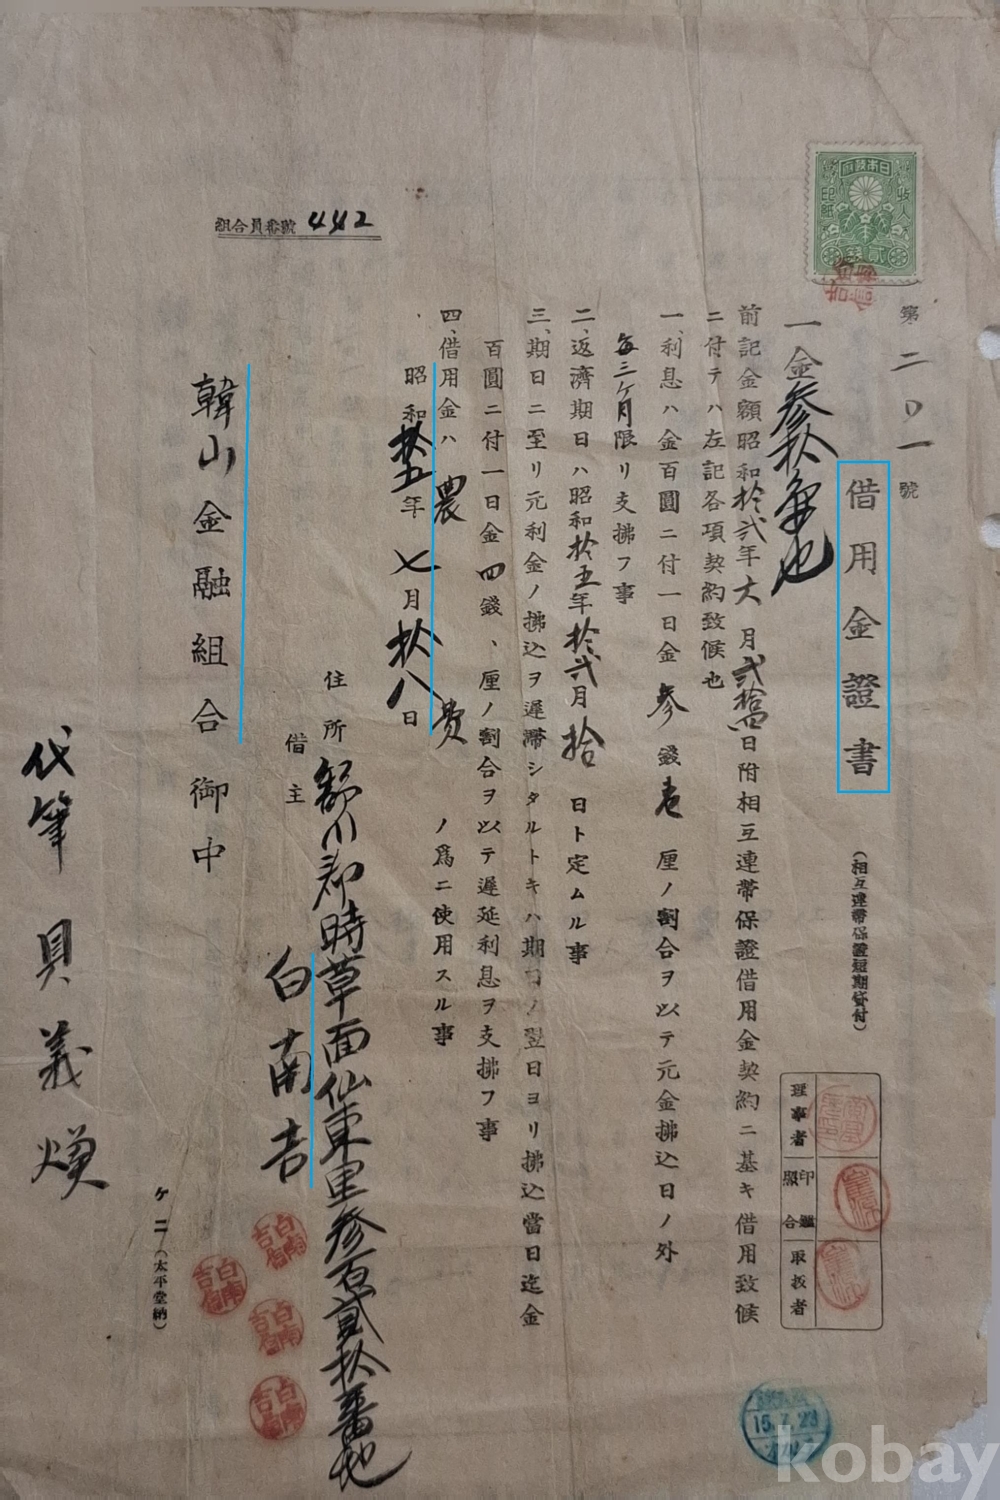 第二〇一號
借用金證書
(相互連帶保證短期貸付)
一金參拾圓也
前記金額昭和拾弐年六月弐拾四日附相互連帶保證借用金契約ニ基キ借用致候
ニ付テハ左記各項契約致候也
一、利息ハ金百圓ニ付一日金參錢壱厘ノ割合ヲ以テ元金拂込日ノ外
每三ケ月限リ支拂フ事
二、返濟期日ハ昭和拾五年拾弐月拾日ト定ムル事
三、期日ニ至リ元利金ノ拂込ヲ遲滯シタルトキハ期日ノ翌日ヨリ拂込當日迄金
百圓ニ付一日金四錢、厘ノ割合ヲ以テ遲延利息ヲ支拂フ事
四、借用金ハ農費ノ爲ニ使用スル事
昭和拾五年七月拾八日
住所 舒川郡時草面仙東里參百貳拾番地
借主 白南吉
韓山金融組合御中
代筆 具義煥
組合員番號 442
ケ二(太平堂納)
理事者
印鑑照合
取扱者
日本政府
收入印紙
白南吉
白南吉
白南吉
白南吉
15.7.23
kobay